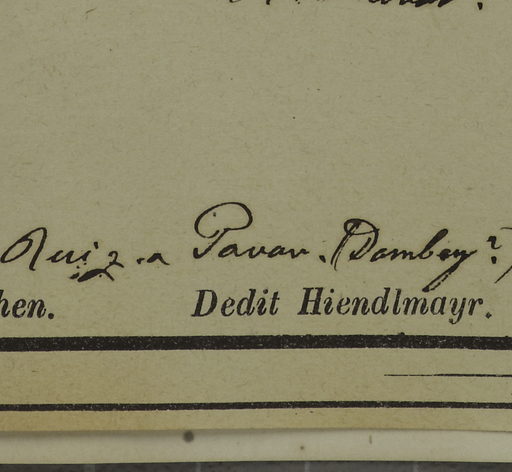 Ruiz. a Pavav. (Dombey?)
hen. Dedit Hiendlmayr.